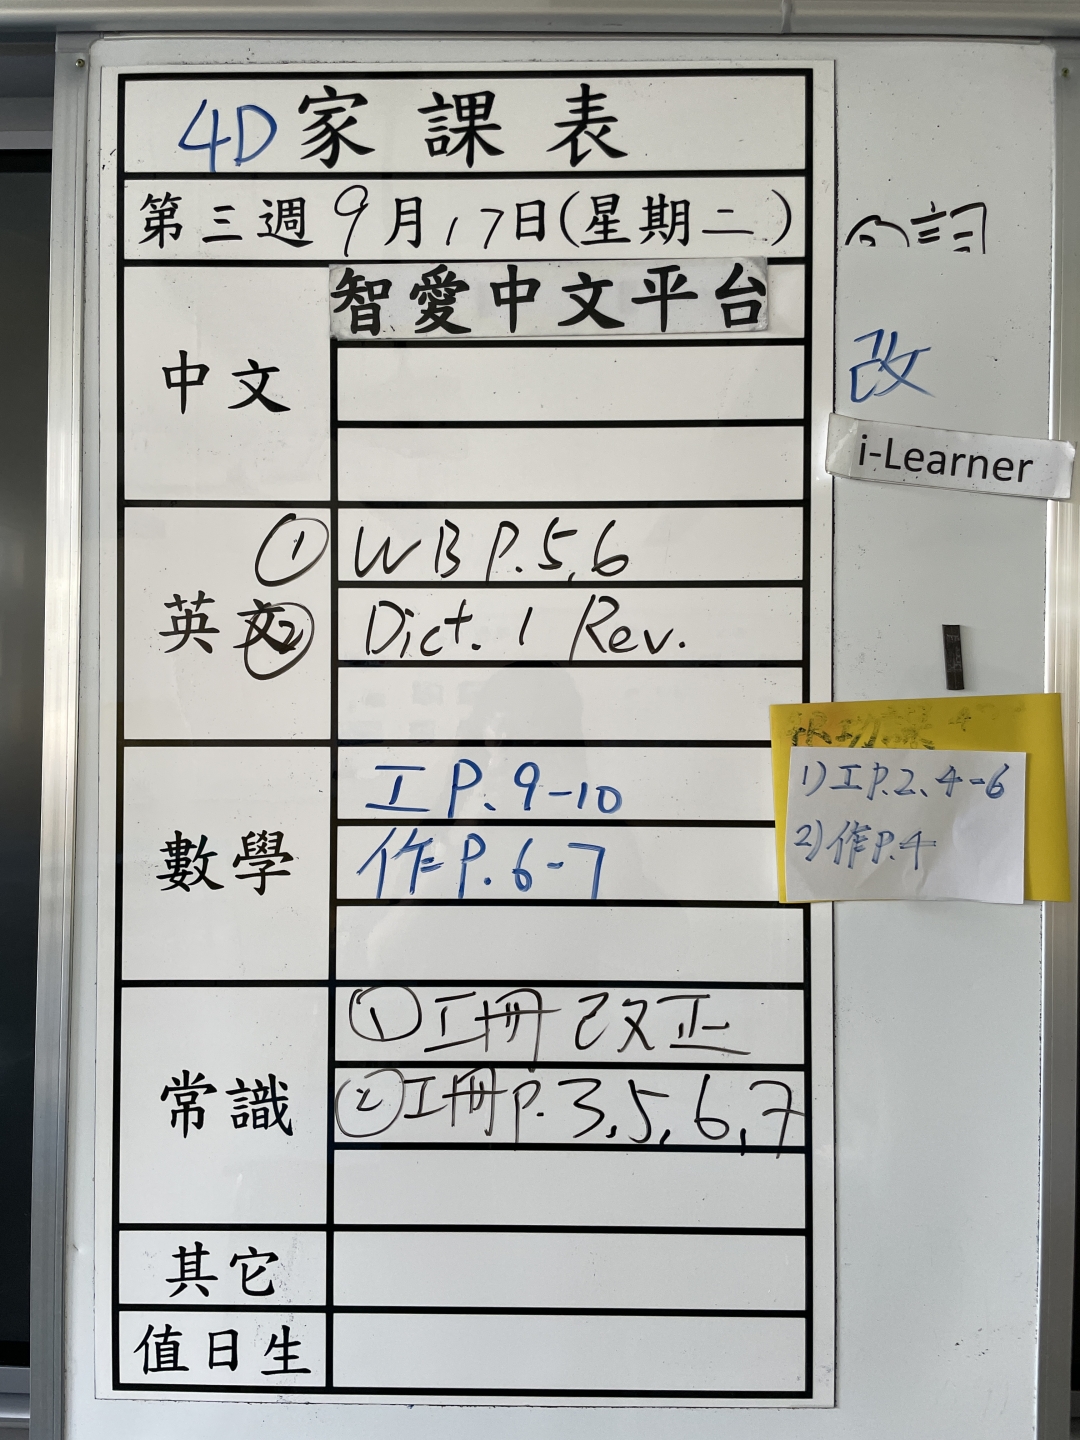 4D 家課表
第三週 9月17日(星期二)
智愛中文平台
中文
改
i-Learner
英文
① WB P.5,6
② Dict. 1 Rev.
數學
工 P. 9-10
作 P. 6-7
1) 工 P.2、4-6
2) 作 P.4
常識
① 工冊 改正
② 工冊 P. 3, 5, 6, 7
其它
值日生